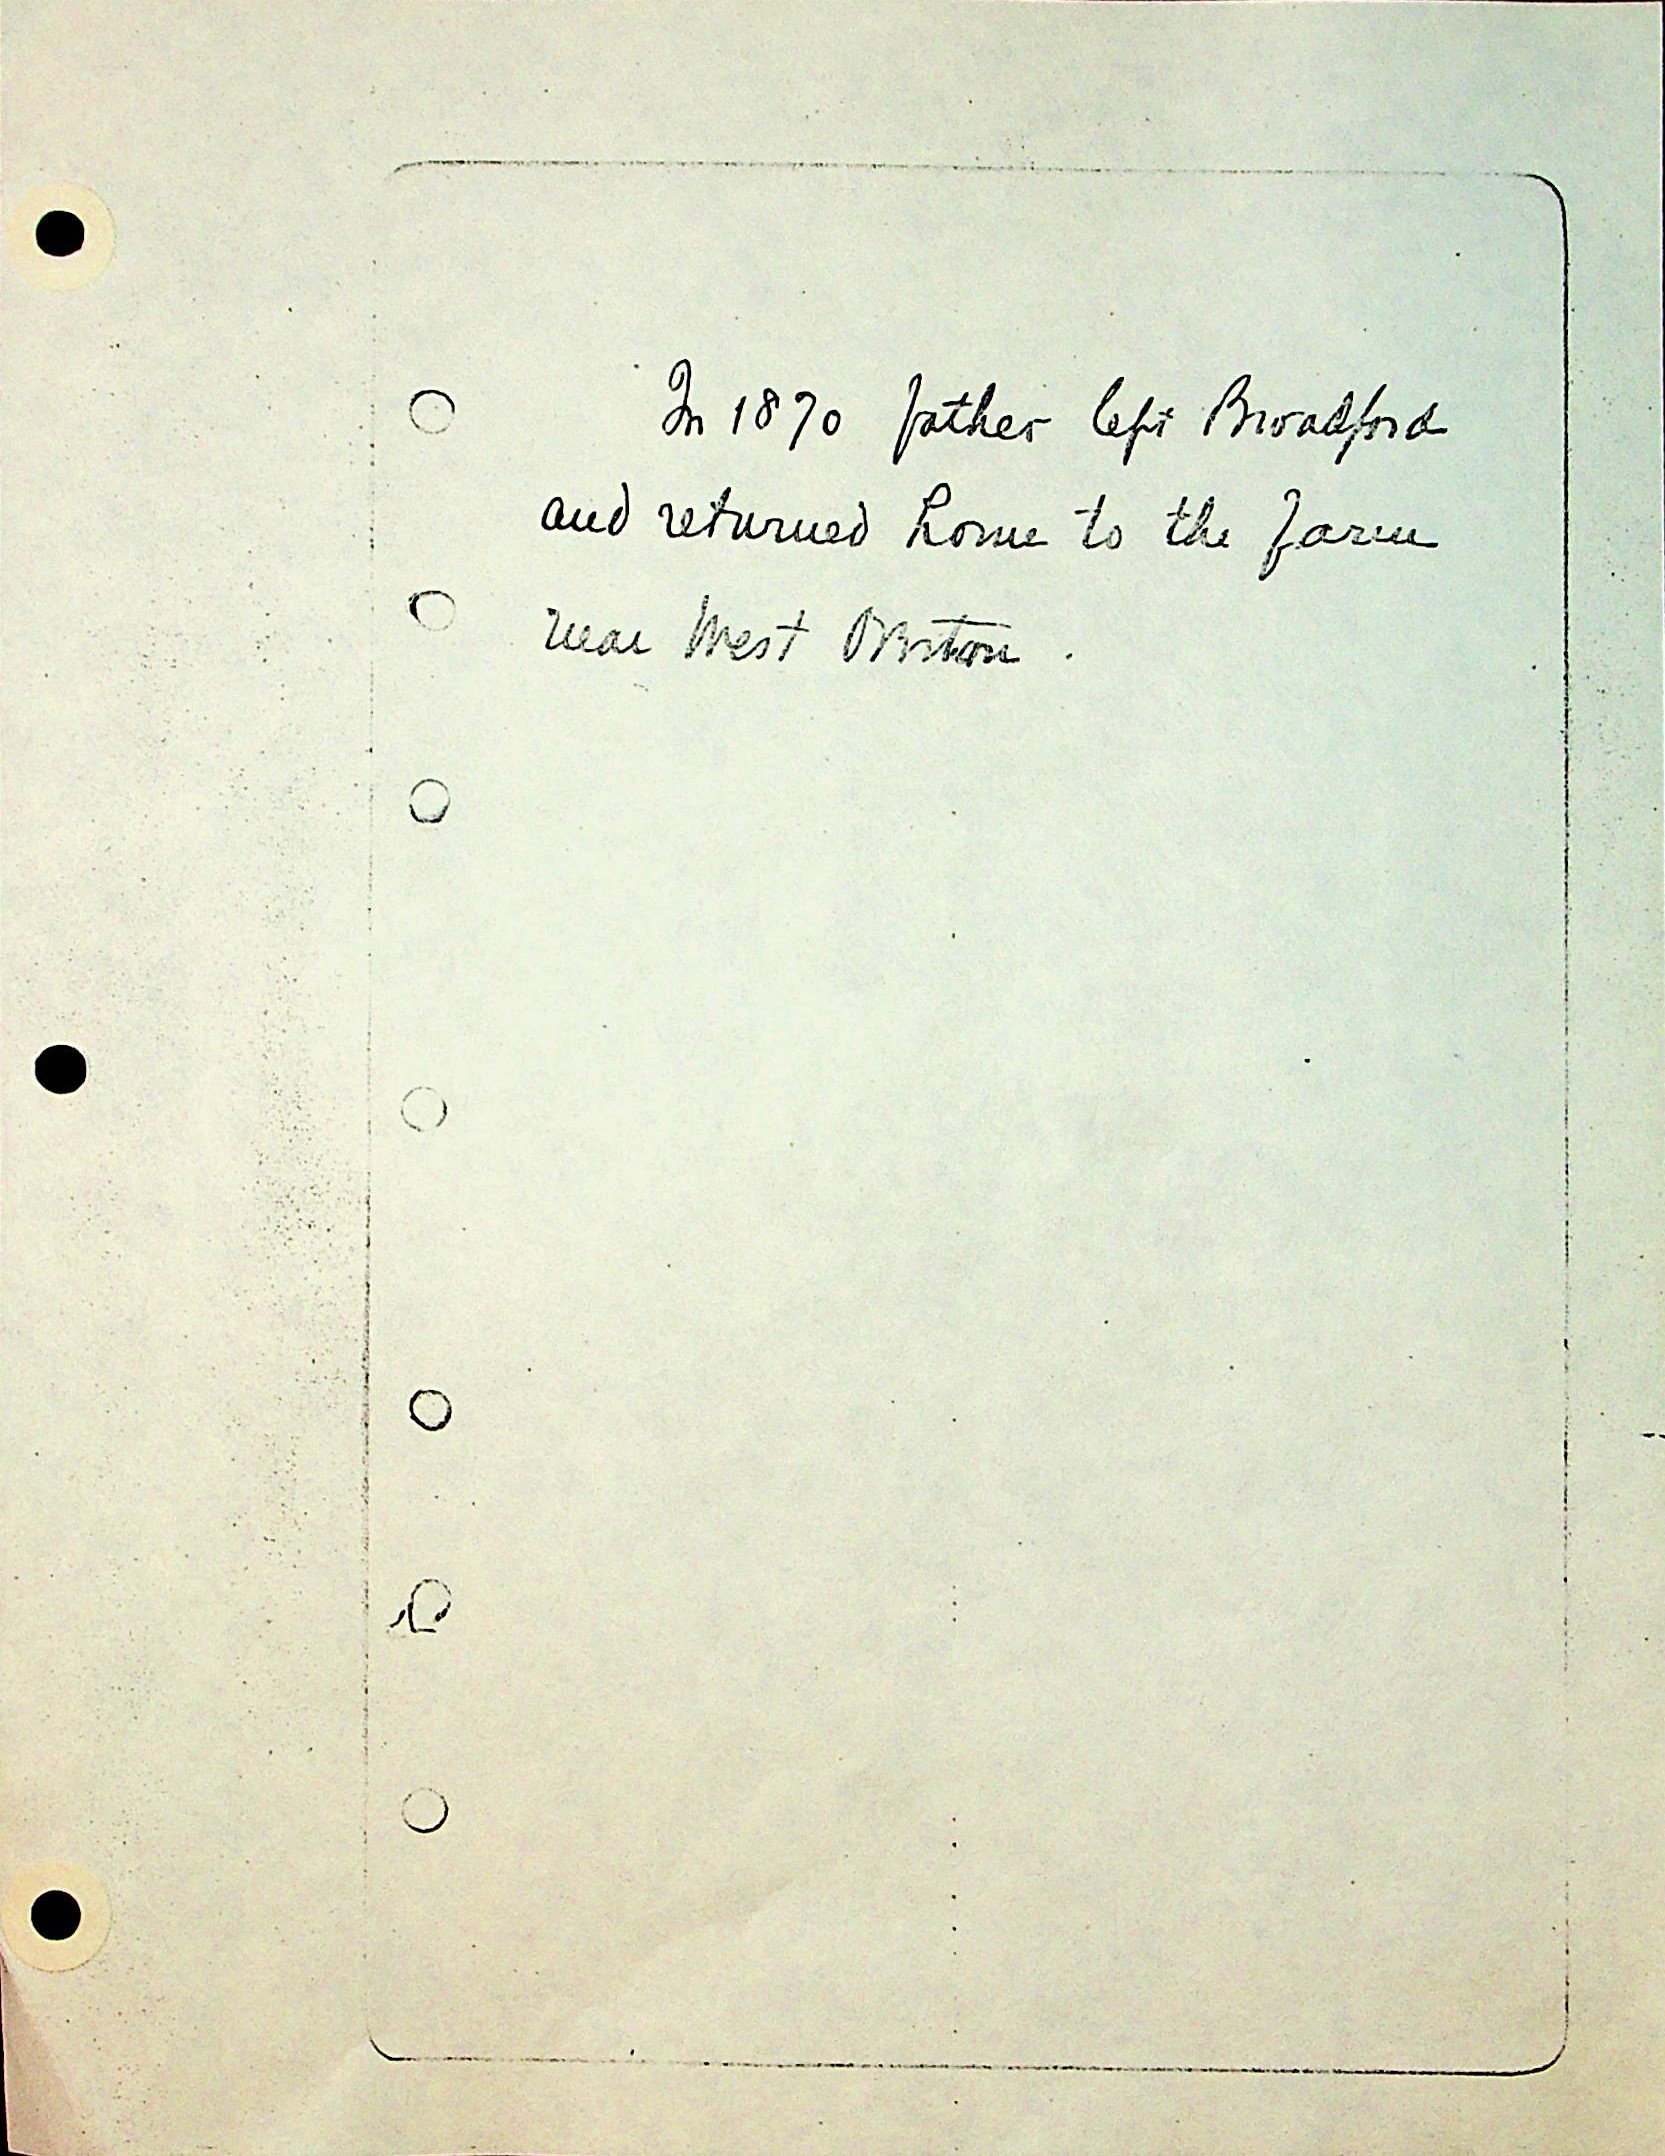 In 1870 father left Broadford
and returned home to the farm
near West